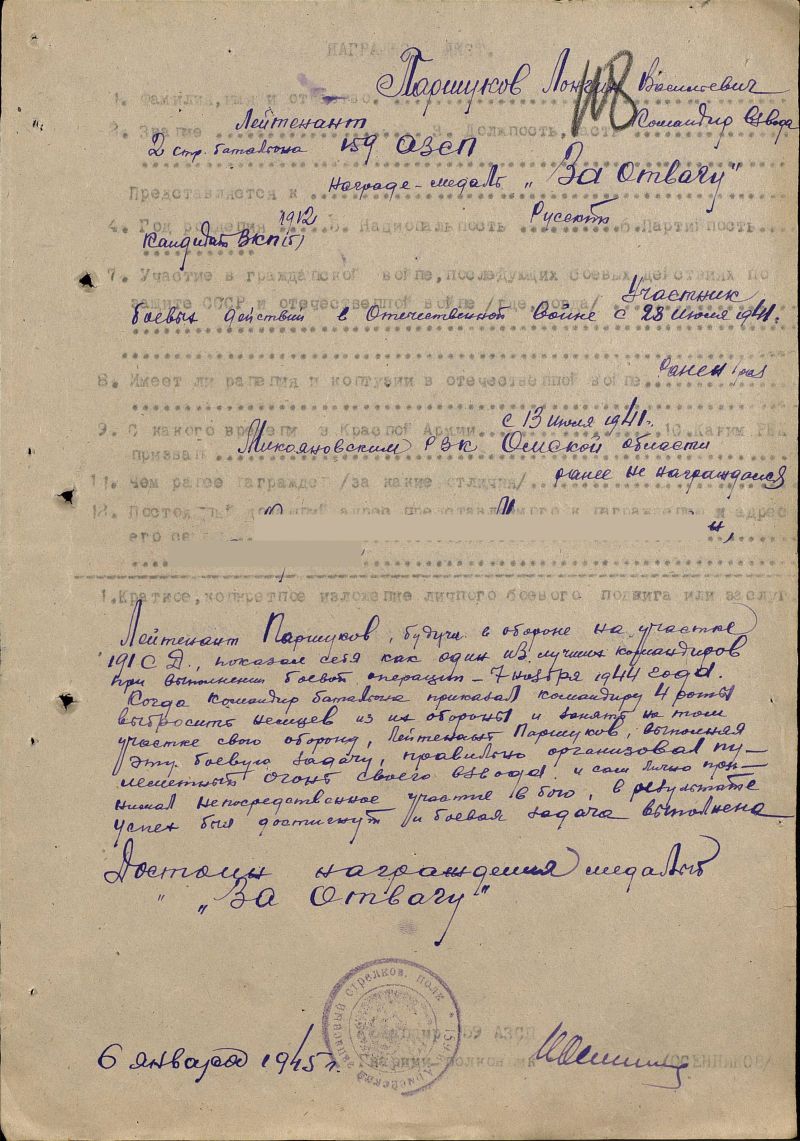 НАГРАДНОЙ ЛИСТ.
Паршуков Лонгин Васильевич
1. Фамилия, имя и отчество
Лейтенант Командир взвода
2. Звание 3. Должность, часть
2 стр. батальона 159 АЗСП
Представляется к награде - медаль „За отвагу"
4. Год рождения 1912 5. Национальность Русский 6. Партийность
Кандидат ВКП(б)
7. Участие в гражданской войне, последующих боевых действиях по
защите СССР и отечественной войне /где, когда/ Участник
боевых действий в Отечественной Войне с 23 июля 1941г.
8. Имеет ли ранения и контузии в отечественной войне ранен 1 раз
9. С какого времени в Красной Армии с 13 июля 1941г. 10. Каким РВК
призван Микояновским РВК Омской области
11. Чем ранее награжден /за какие отличия/ ранее не награждался
12. Постоянный адрес представляемого к награждению и адрес
его
1. Краткое, конкретное изложение личного боевого подвига или заслуг
Лейтенант Паршуков, будучи в обороне на участке
191 С Д., показал себя как один из лучших командиров
при выполнении боевой операции - 7 ноября 1944 года.
Когда командир батальона приказал командиру 4 роты
выбросить немцев из их обороны и занять на том
участке свою оборону, Лейтенант Паршуков, выполняя
эту боевую задачу, правильно организовал пу-
леметный огонь своего взвода и сам лично при-
нимал непосредственное участие в бою, в результате
успех был достигнут и боевая задача выполнена
Достоин награждения медалью
„За Отвагу"
Командир 159 АЗСП
6 января 1945 г. Гвардии полковник /ОСЕННИКОВ/
запасный стрелков. полк * 159 Армейский